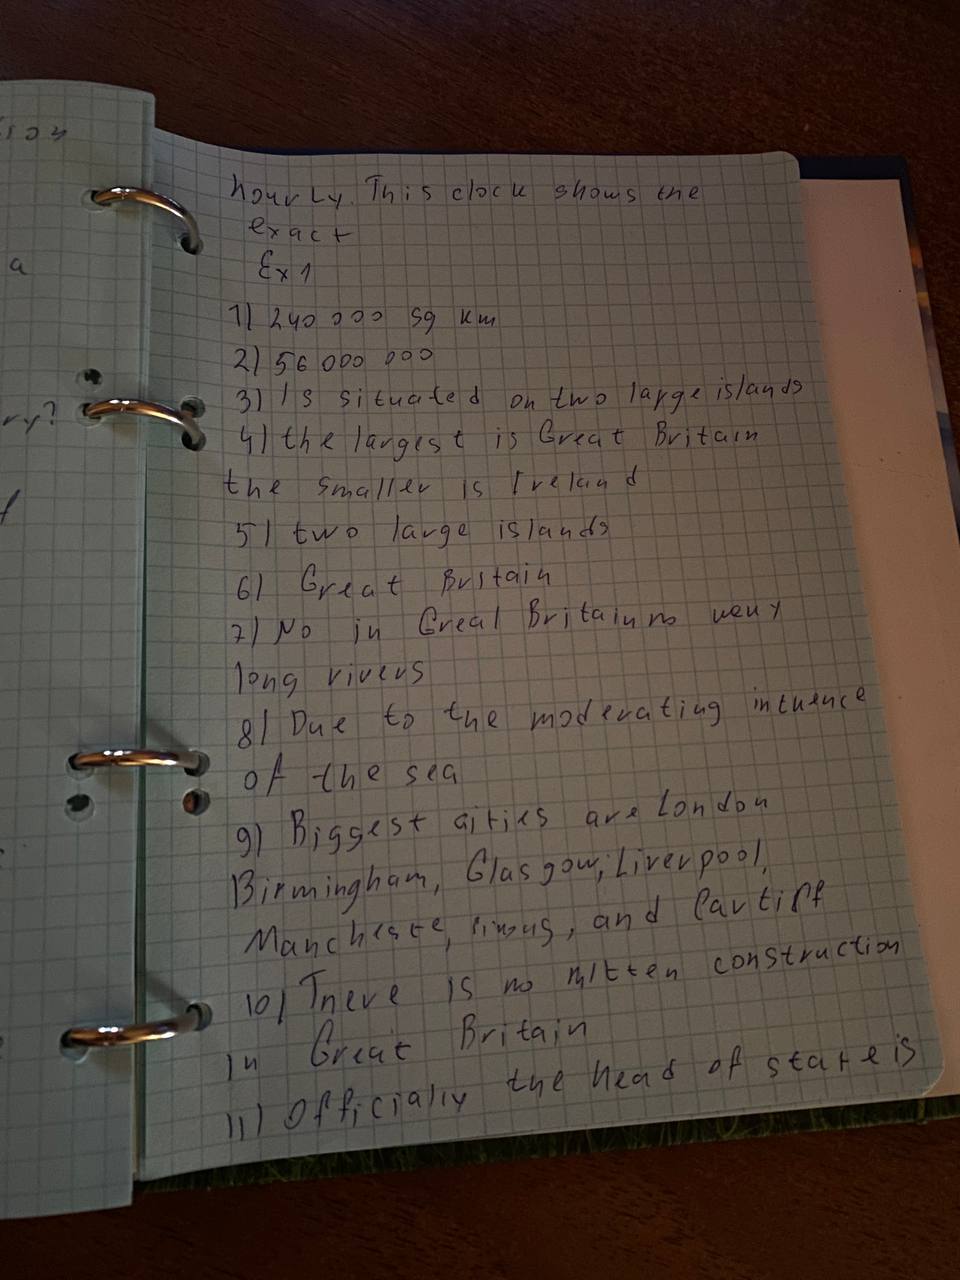 ry?
a
hourly. This clock shows the
exact
Ex 1
1) 240 000 sq km
2) 56 000 000
3) Is situated on two large islands
4) the largest is Great Britain
the smaller is Ireland
5) two large islands
6) Great Britain
7) No in Great Britain no very
long rivers
8) Due to the moderating intuence
of the sea
9) Biggest cities are London
Birmingham, Glasgow, Liverpool,
Mancheste, and Cartiff
10) There is no construction
in Great Britain
11) Officially the head of state is